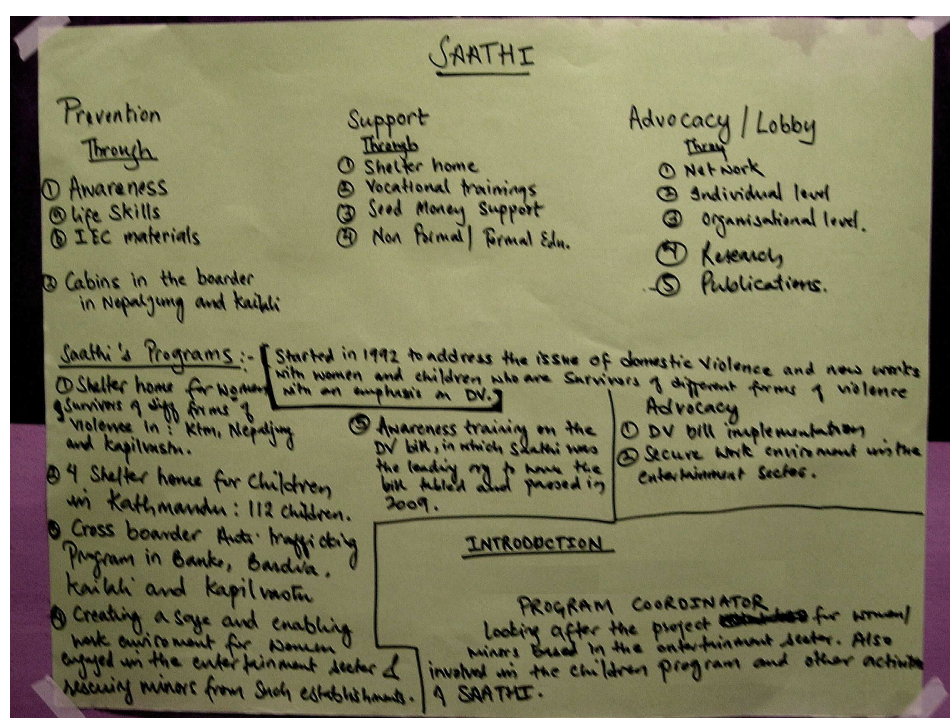 SAATHI
Prevention
Through
① Awareness
② life Skills
③ IEC materials
③ Cabins in the boarder
in Nepaljung and Kailali
Support
Through
① Shelter home
② Vocational trainings
③ Seed Money Support
④ Non Formal/ Formal Edu.
Advocacy / Lobby
① Network
② Individual level
③ Organisational level.
④ Research
⑤ Publications.
Saathi's Programs :-
Started in 1992 to address the issue of domestic Violence and now works
with women and children who are Survivors of different forms of violence
with an emphasis on DV.
① Shelter home for women
survivors of diff forms of
violence in : Ktm, Nepaljung
and Kapilvastu.
② 4 Shelter home for Children
in Kathmandu : 112 children.
③ Cross boarder Anti-trafficking
Program in Banke, Bardiya,
Kailali and Kapilvastu
④ Creating a safe and enabling
work enviroment for women
engaged in the entertainment sector &
rescuing minors from Such establishments.
⑤ Awareness training on the
DV bill, in which Saathi was
the leading org to have the
bill tabled and passed in
2009.
Advocacy
① DV bill implementation
② Secure work enviroment in the
entertainment Sector.
INTRODUCTION
PROGRAM COORDINATOR
Looking after the project for women/
minors based in the entertainment sector. Also
involved in the children program and other activities
of SAATHI.